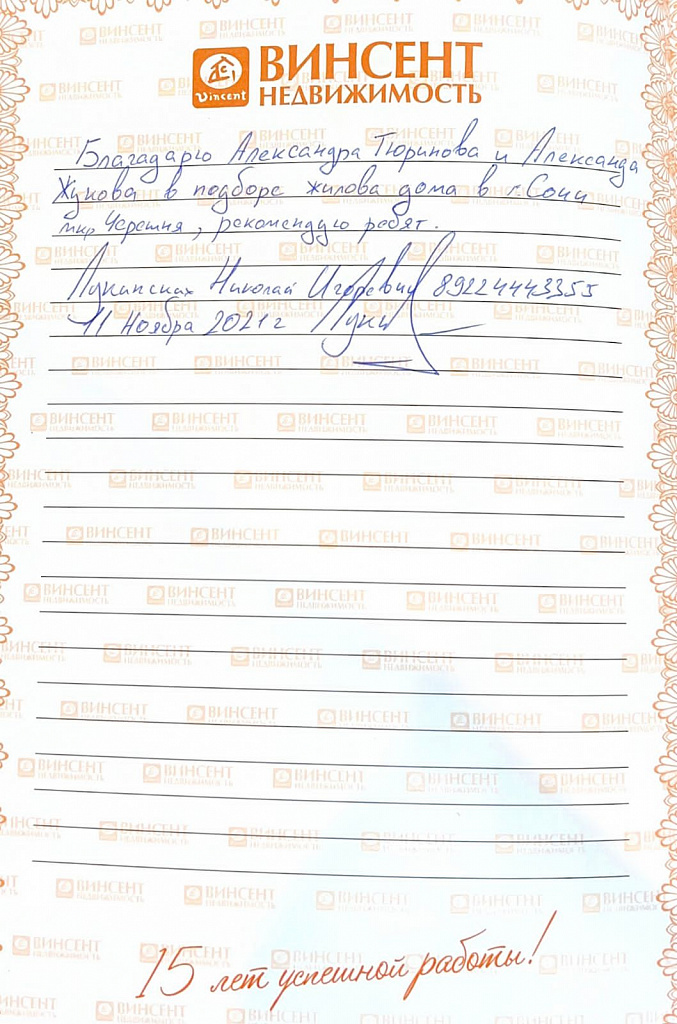 Vincent
ВИНСЕНТ
НЕДВИЖИМОСТЬ
Благадарю Александра Тюринова и Александа
Жукова в подборе жилова дома в г. Сочи
мкр Черешня, рекомендую ребят.
Николай Игоревич 89224443355
11 Ноября 2021 г
15 лет успешной работы!